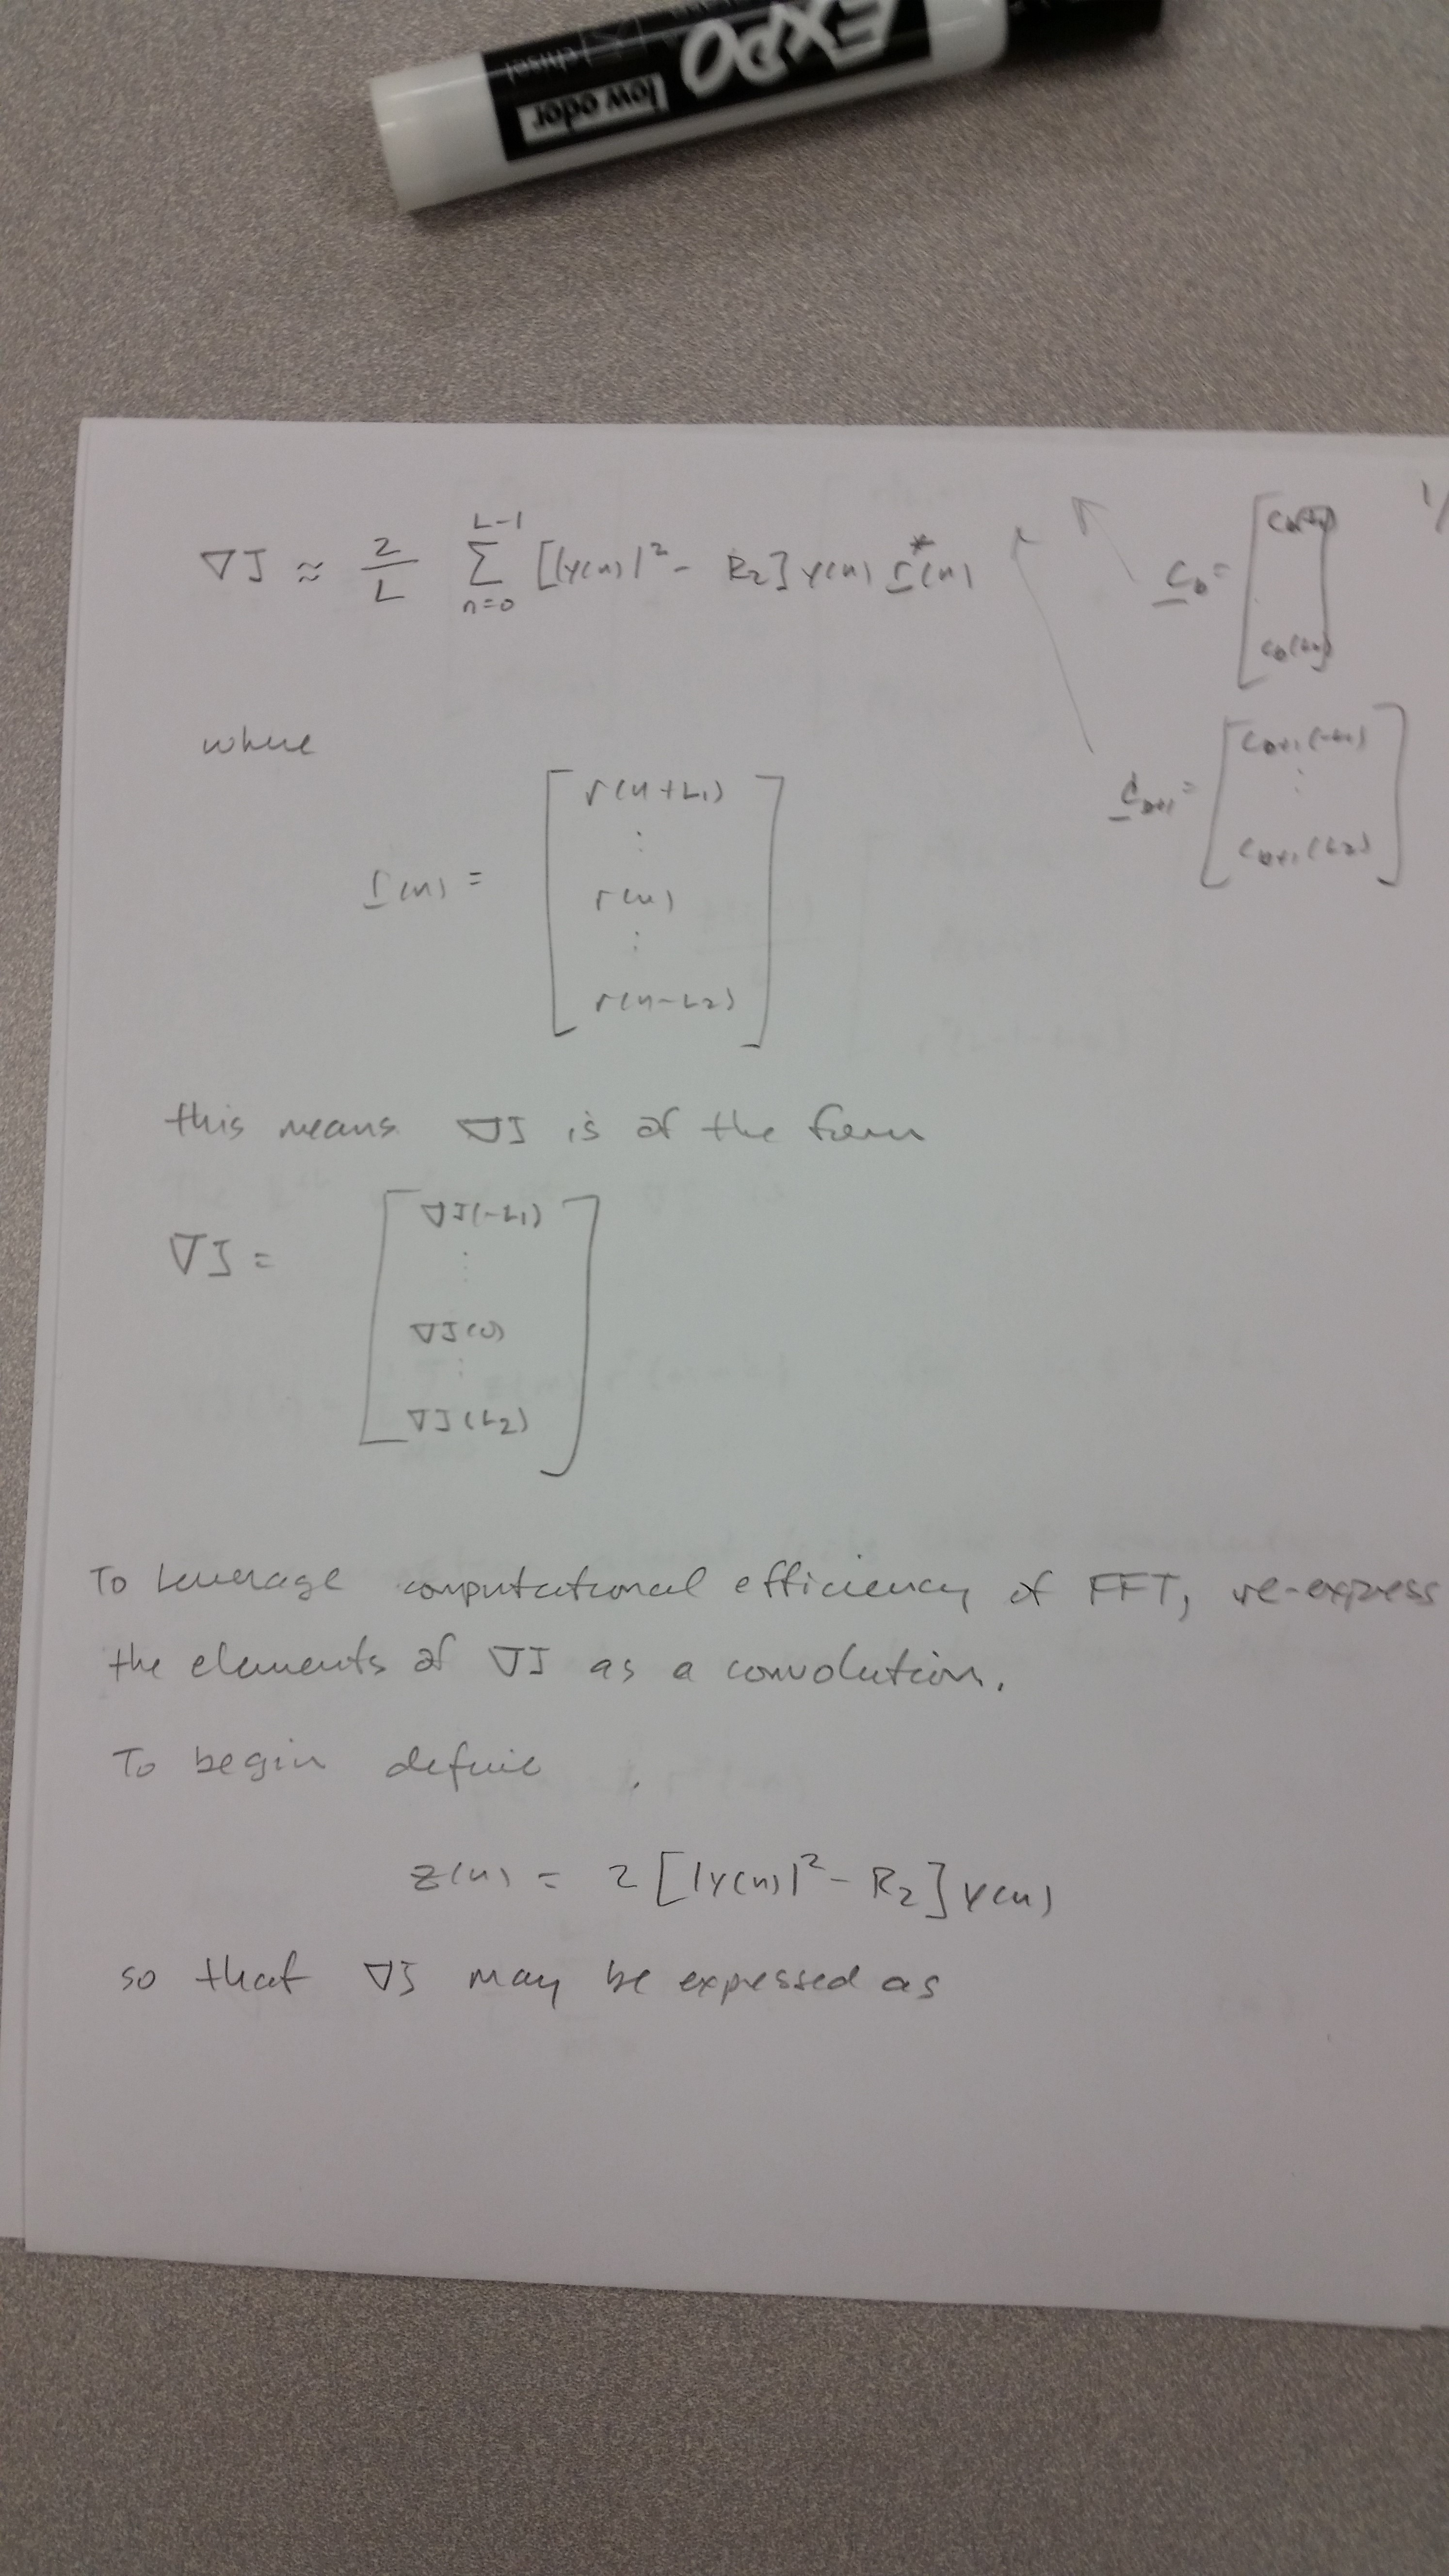 EXPO
low odor
chisel
∇J ≈ 2/L Σ_{n=0}^{L-1} [|y(n)|² - R₂] y(n) r*(n)
1/
c_b = [
c_b(L₂)
]
where
r(n) = [
r(n+L₁)
⋮
r(n)
⋮
r(n-L₂)
]
c_{b+1} = [
c_{b+1}(-L₁)
⋮
c_{b+1}(L₂)
]
this means ∇J is of the form
∇J = [
∇J(-L₁)
⋮
∇J(0)
⋮
∇J(L₂)
]
To leverage computational efficiency of FFT, re-express
the elements of ∇J as a convolution.
To begin define
z(n) = 2 [|y(n)|² - R₂] y(n)
so that ∇J may be expressed as